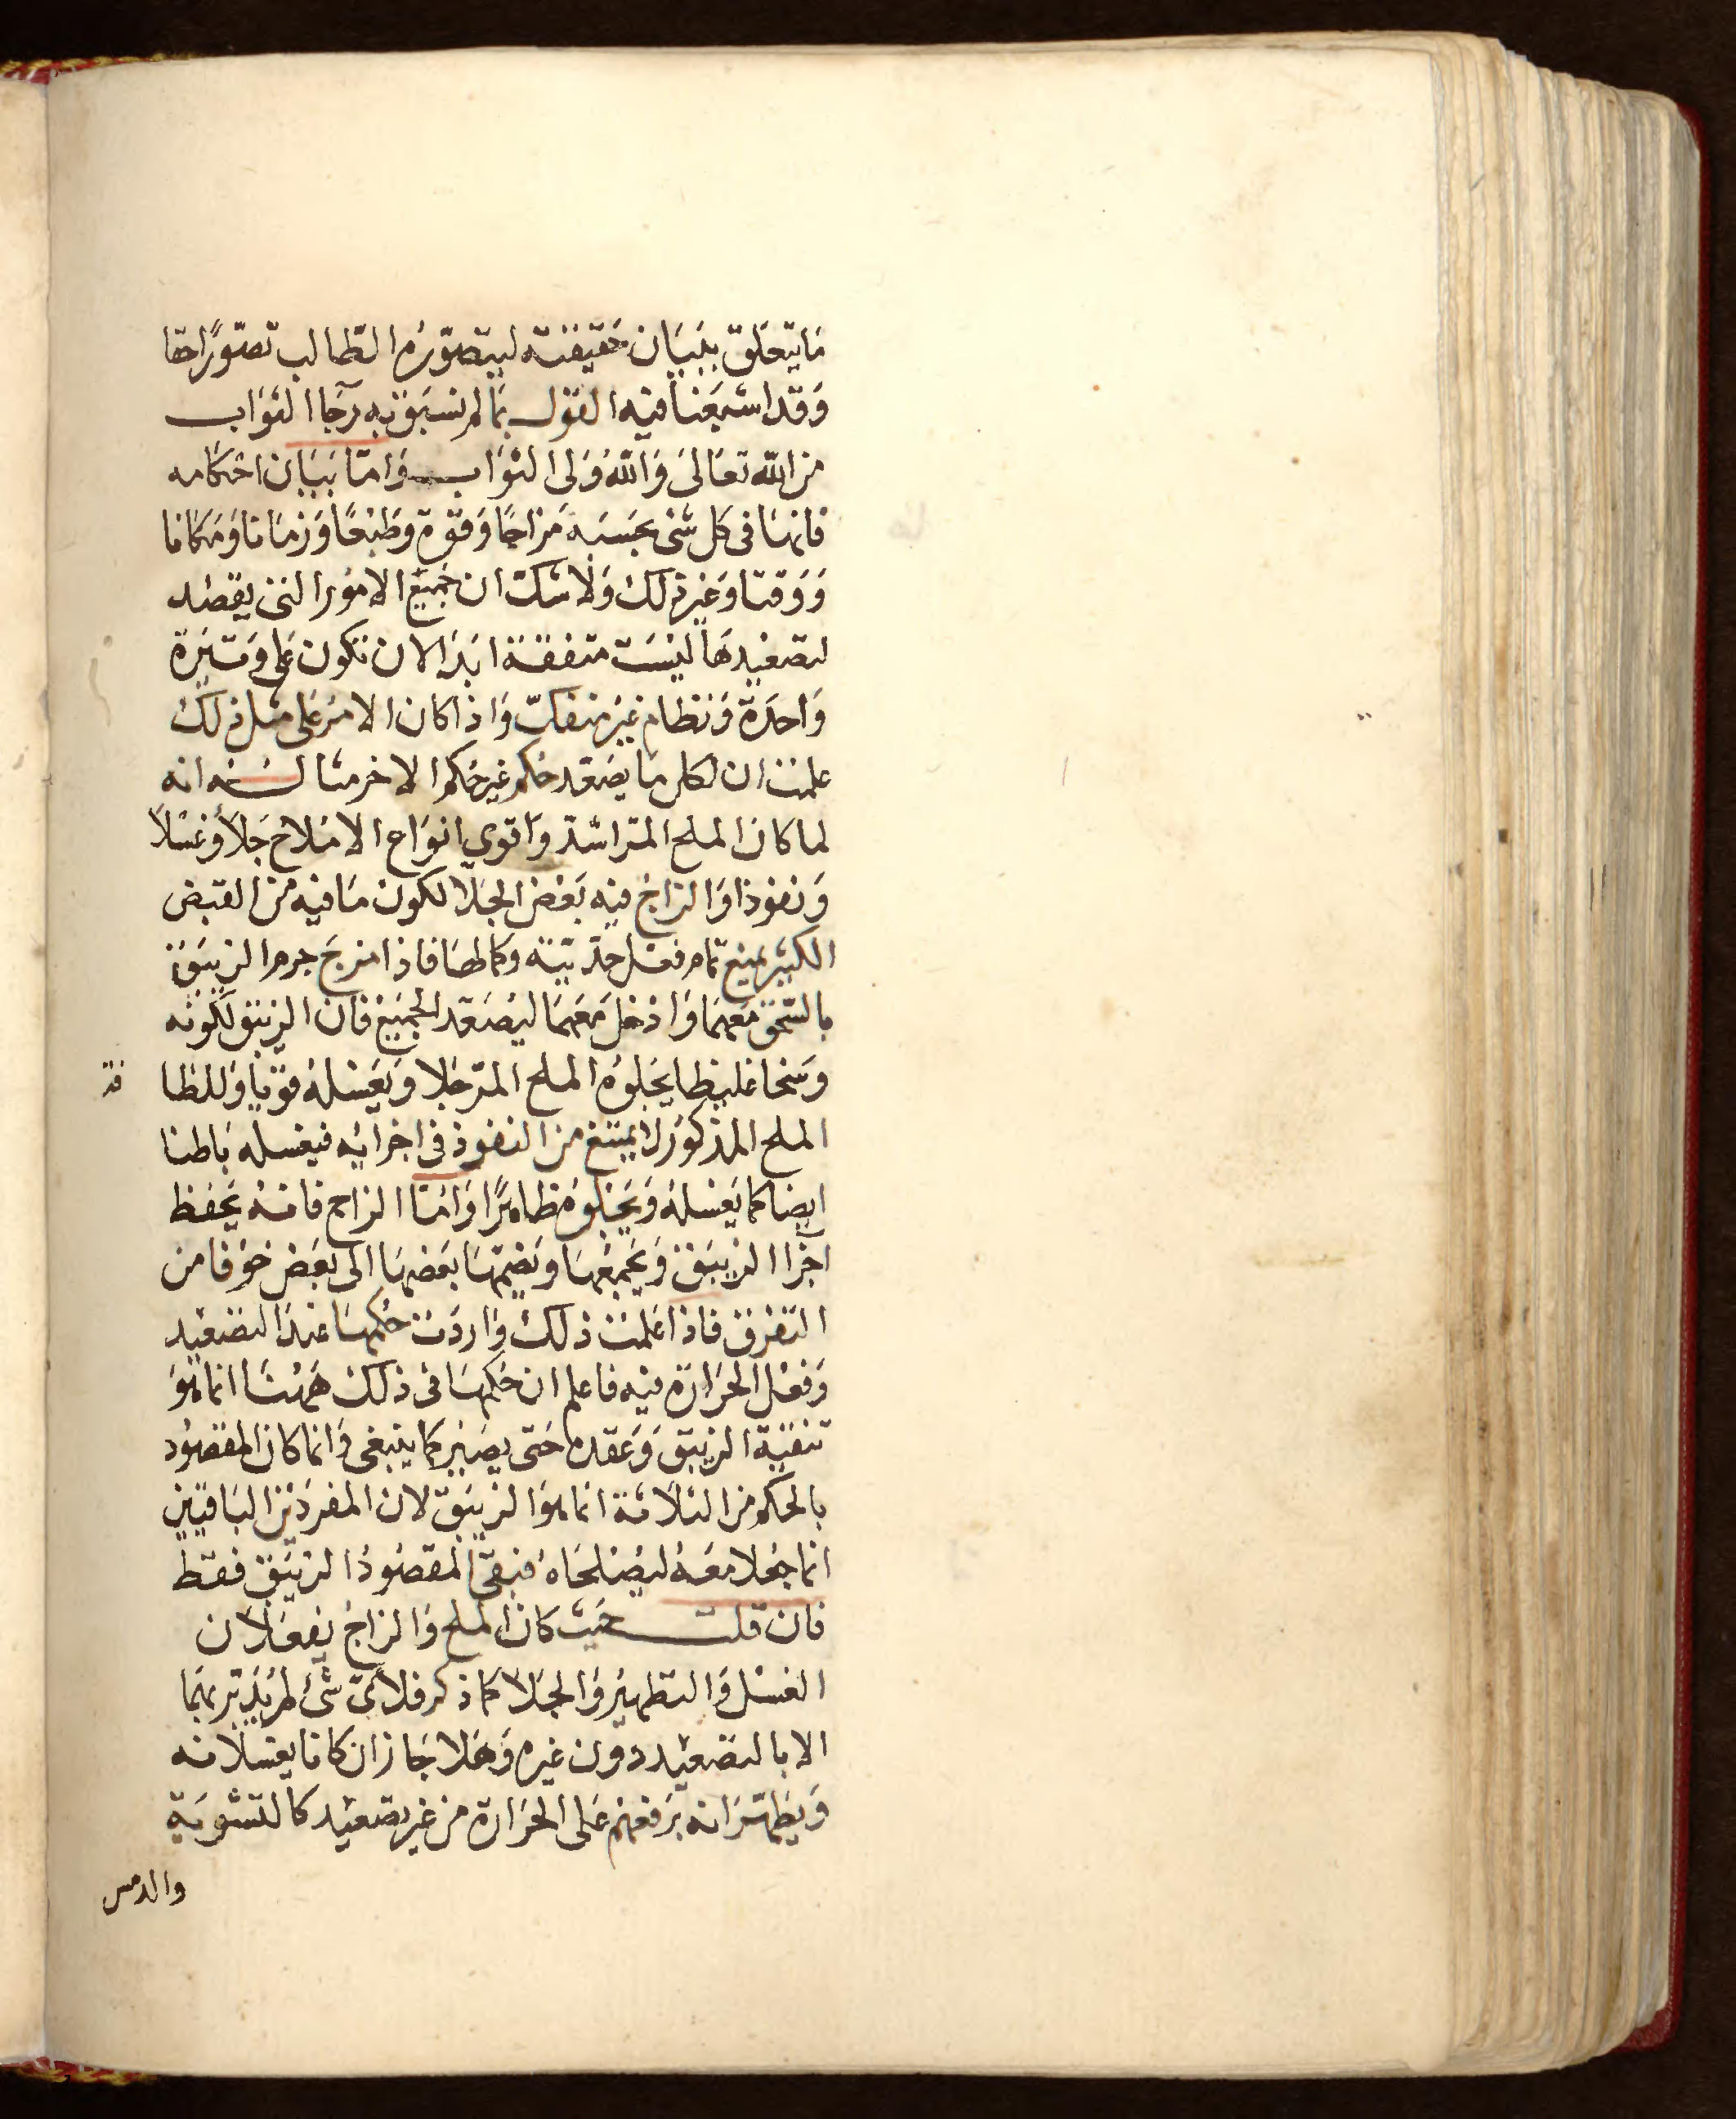 ما يتعلق ببيان حقيقته ليتصوره الطالب تصورًا حقا
وقد اشبعنا فيه القول بما لم نسبق به رجا الثواب
من الله تعالى والله ولى الثواب واما بيان احكامه
فانها فى كل شى بحسبه مزاجًا وقوة وطبعًا وزمانا ومكانا
ووقتا وغير ذلك ولا شك ان جميع الامور التى يقصد
لتصعيدها ليست متفقة ابدا لان تكون على وتيرة
واحدة ونظام غير منفك واذا كان الامر على مثل ذلك
علمت ان لكل ما يصعد حكم غير حكم الاخر مثاله انه
لما كان الملح المر اشد واقوى انواع الاملاح جلاً وغسلاً
ونفوذا والزاج فيه بعض الجلا لكون ما فيه من القبض
الكثير يمنع تمام فعل حدّيته وكمالها فاذا مزج جرم الزيبق
بالسحق معهما وادخل معهما ليصعد الجميع فان الزيبق لكونه
وسخا غليظا يجلوه الملح المر جلا ويغسله قويا وللطا
فة
الملح المذكور لا يمتنع من النفوذ فى اجزائه فيغسله باطنا
ايضا كما يغسله ويجلوه ظاهرًا واما الزاج فانه يحفظ
اجزا الزيبق ويجمعها ويضمها بعضها الى بعض خوفا من
التفرق فاذا علمت ذلك واردت حكمها عند التصعيد
وفعل الحرارة فيه فاعلم ان حكمها فى ذلك ههنا انما هو
تنقية الزيبق وعقده حتى يصير كما ينبغى وانما كان المقصود
بالحكم من الثلاثة انما هو الزيبق لان المفردين الباقيين
انما جعلا معه ليصلحاه فبقى المقصود الزيبق فقط
فان قلت حيث كان الملح والزاج يفعلان
الغسل والتطهير والجلا كما ذكر فلاىّ شئ لم يدبر بهما
الا بالتصعيد دون غيره وهلا جاز ان كانا يغسلانه
ويطهرانه برفعهم على الحرارة من غير تصعيد كالتشوية
والدمس